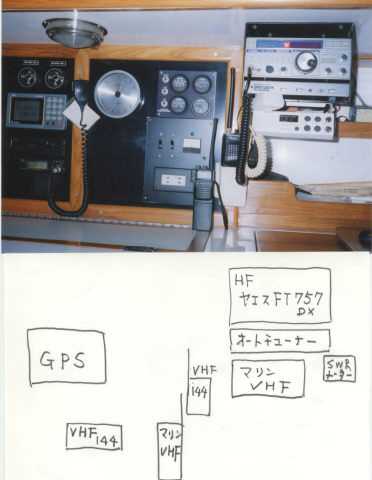 HF
ヤエス FT757
DX
オートチューナー
GPS
VHF
144
マリン
VHF
SWR
メーター
VHF 144
マリン
VHF